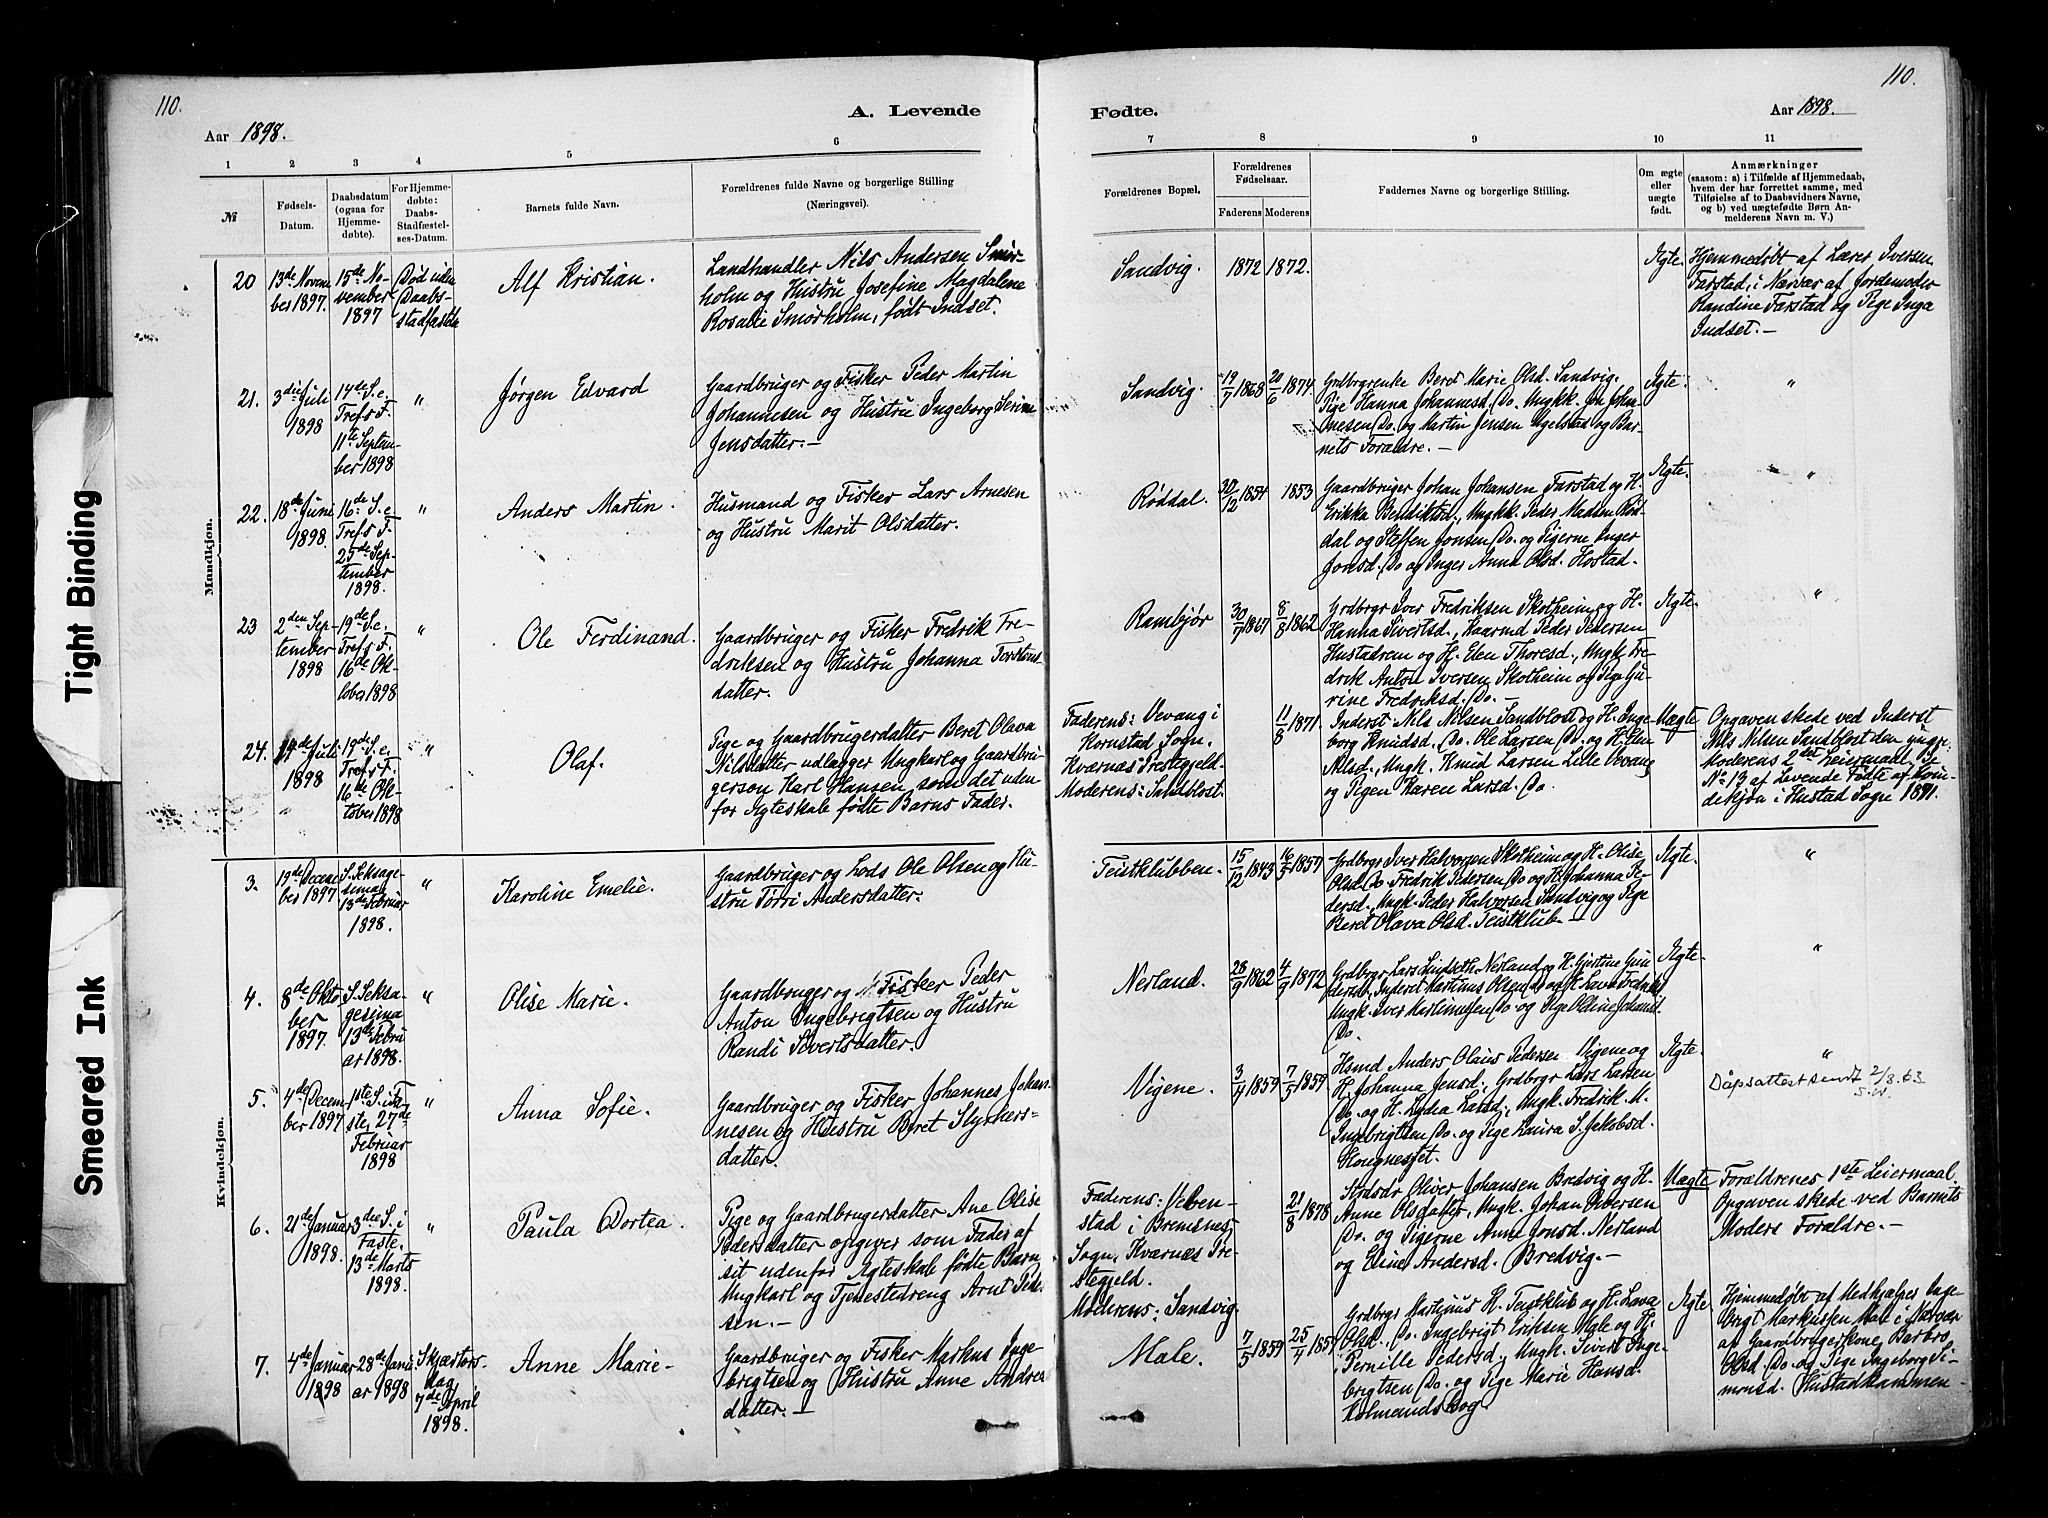 110.
110.
A. Levende
Fødte.
Aar 1898.
Aar 1898.
1
2
3
4
5
6
7
8
9
10
11
№
Fødsels-
Datum.
Daabsdatum
(ogsaa for
Hjemme-
døbte).
For Hjemme-
døbte:
Daabs-
Stadfæstel-
ses-Datum.
Barnets fulde Navn.
Forældrenes fulde Navne og borgerlige Stilling
(Næringsvei).
Forældrenes Bopæl.
Forældrenes
Fødselsaar.
Faderens
Moderens
Faddernes Navne og borgerlige Stilling.
Om ægte
eller
uægte
født.
Anmærkninger
(saasom: a) i Tilfælde af Hjemmedaab,
hvem der har forrettet samme, med
Tilføielse af to Daabsvidners Navne,
og b) ved uægtefødte Børn An-
melderens Navn m. V.)
Mandkjøn.
20
13de Novem
ber 1897.
15de No-
vember
1897
Død uden
Daabs-
stadfæstelse
Alf Kristian.
Landhandler Nils Andersen Smør-
holm og Hustru Josefine Magdalene
Rosalie Smørholm, født Indset.
Sandvig.
1872
1872.
Ægte.
Hjemmedøbt af Lærer Iversen
Farstad, i Nærvær af Jordemoder
Randine Farstad og Pige Inga
Indset. -
21.
3die Juli
1898
14de S. e.
Tref's F.
11te Septem-
ber 1898
"
Jørgen Edvard
Gaardbruger og Fisker Peder Martin
Johannesen og Hustru Ingeborg Serine
Jensdatter. -
Sandvig.
19/7 1868
20/6 1874
Grdbrgrenke Beret Marie Olsd. Sandvig,
Pige Hanna Johannesd. Do. Ungkk. Jon Johan-
nesen Do. og Martin Jensen Ugelstad og Bar-
nets Forældre. -
Ægte.
"
22.
18de Juni
1898.
16de S. e.
Tref's F.
25de Sep-
tember
1898.
"
Anders Martin.
Husmand og Fisker Lars Arnesen
og Hustru Marit Olsdatter.
Røddal.
30/12 1854
1853
Gaardbruger Johan Johansen Farstad og H.
Erikka Bendiktsd., Ungkk. Peder Madsen Rød-
dal og Steffen Jonsen Do. og Pigerne Inger
Jonsd. Do og Inger Anna Olsd. Hostad.
Ægte.
"
23
2den Sep-
tember
1898
19de S. e.
Tref's F.
16de Ok-
tober 1898
"
Ole Ferdinand.
Gaardbruger og Fisker Fredrik Fre-
driksen og Hustru Johanna Torstens-
datter.
Rambjør
30/7 1867
8/8 1862
Grdbrgr Iver Fredriksen Skotheim og H.
Hanna Sivertsd., Kaarmd Peder Pedersen
Hustadrem og H. Elen Thoresd., Ungk. Fre-
drik Anton Iversen Skotheim og Pige Gu-
rine Fredriksd. Do. -
Ægte.
"
24.
14de Juli
1898
19de S. e.
Tref's F.
16de Ok-
tober 1898
"
Olaf.
Pige og Gaardbrugerdatter Beret Olava
Nilsdatter udlægger Ungkarl og Gaardbru-
gerson Karl Hansen, som det uden
for Ægteskab fødte Barns Fader.
Faderens: Vevang i
Kornstad Sogn,
Kværnæs Prestegjeld.
Moderens: Sandblost.
11/8 1871.
Inderst Nils Nilsen Sandblost og H. Inge-
borg Knudsd. Do. Ole Larsen Do. og H. Elen
Nilsd., Ungk. Knud Larsen Lille Vevang
og Pigen Karen Larsd. Do.
Uægte
Opgaven skede ved Inderst
Nils Nilsen Sandblost den yngre.
Moderens 2det Leiermaal, se
No 13 af Levende Fødte af Kvin-
dekjøn i Hustad Sogn 1891.
Kvindekjøn.
3.
19de Decem
ber 1897
S. Seksage-
sima
13de Februar
1898.
"
Karoline Emelie.
Gaardbruger og Lods Ole Olsen og Hu-
stru Torri Andersdatter.
Teistklubben.
15/12 1843
16/5 1857
Grdbrgr Iver Halvorsen Skotheim og H. Olise
Olsd. Do. Fredrik Pedersen Do og H. Johanna Pe-
dersd., Ungk. Peder Halvorsen Sandvig og Pige
Beret Olava Olsd. Teistklub. -
Ægte.
"
4.
8de Okto
ber
1897.
S. Seksa-
gesima
13de Febru
ar 1898.
"
Olise Marie.
Gaardbruger og Fisker Peder
Anton Ingebrigtsen og Hustru
Randi Sivertsdatter.
Nerland.
28/9 1862
4/9 1872
Grdbrgr Lars Lindseth Nerland og H. Gjertine Gun
dersd., Inderst Martinus Olsen Do og H. Lava Fredriksd.
Ungk. Iver Martinusen Do og Pige Oline Johansd.
Do.
Ægte.
"
5.
4de Decem
ber 1897
1ste S. i Fa-
ste, 27de
Februar
1898
"
Anna Sofie.
Gaardbruger og Fisker Johannes Johan-
nesen og Hustru Beret Styrkers-
datter.
Vigene.
3/4 1859
7/5 1859
Hsmd Anders Olaus Pedersen Vigene og
H. Johanna Jensd., Grdbrgr Lars Larsen
Do. og H. Lydia Larsd., Ungk. Fredrik M.
Ingebrigtsen Do. og Pige Laura S. Jakobsd.
Houg<nesset.
Ægte.
"
Dåpsattest sendt 2/8.63
6.
21de Januar
1898.
3die S. i
Faste.
13de Marts
1898.
"
Paula Dortea.
Pige og Gaardbrugerdatter Ane Olise
Pedersdatter opgiver som Fader af
sit udenfor Ægteskab fødte Barn
Ungkarl og Tjenestedreng Arnt Peder-
sen. -
Faderens: Veben-
stad i Bremsnes
Sogn, Kværnæs Pre-
stegjeld.
Moderens: Sandvig.
21/8 1878
Oliver Johansen Bredvig og H.
Anne Olsdatter, Ungk. Johan Olversen
Do. og Pigerne Anne Jonsd. Nerland
og Eline Andersd. Bredvig. -
Uægte
Forældrenes 1ste Leiermaal.
Opgaven skede ved Barnets
Moders Forældre. -
7.
4de Januar
1898
28de Janu
ar 1898
Skjærtors-
dag
7de April
1898.
Anne Marie-
Gaardbruger og Fisker Markus Inge-
brigtsen og Hustru Anne Andreas
datter. -
Male.
7/5 1859
25/4 1857
Grdbrgr Martinus K. Teistklub og H. Lava
Olsd. Do. Ingebrigt Eriksen Male og H.
Pernille Pedersd., Ungk. Sivert Inge-
brigtsen Do. og Pige Marie Hansd.
Kolmandsbog
Ægte
Hjemmedøbt af Medhjælper Inge-
brigt Markussen Male i Nærvær
af Gaardbrugerkone Barbro
Olsd Do. og Pige Ingeborg Si-
monsd. Hustadkammen -
Tight Binding
Smeared Ink